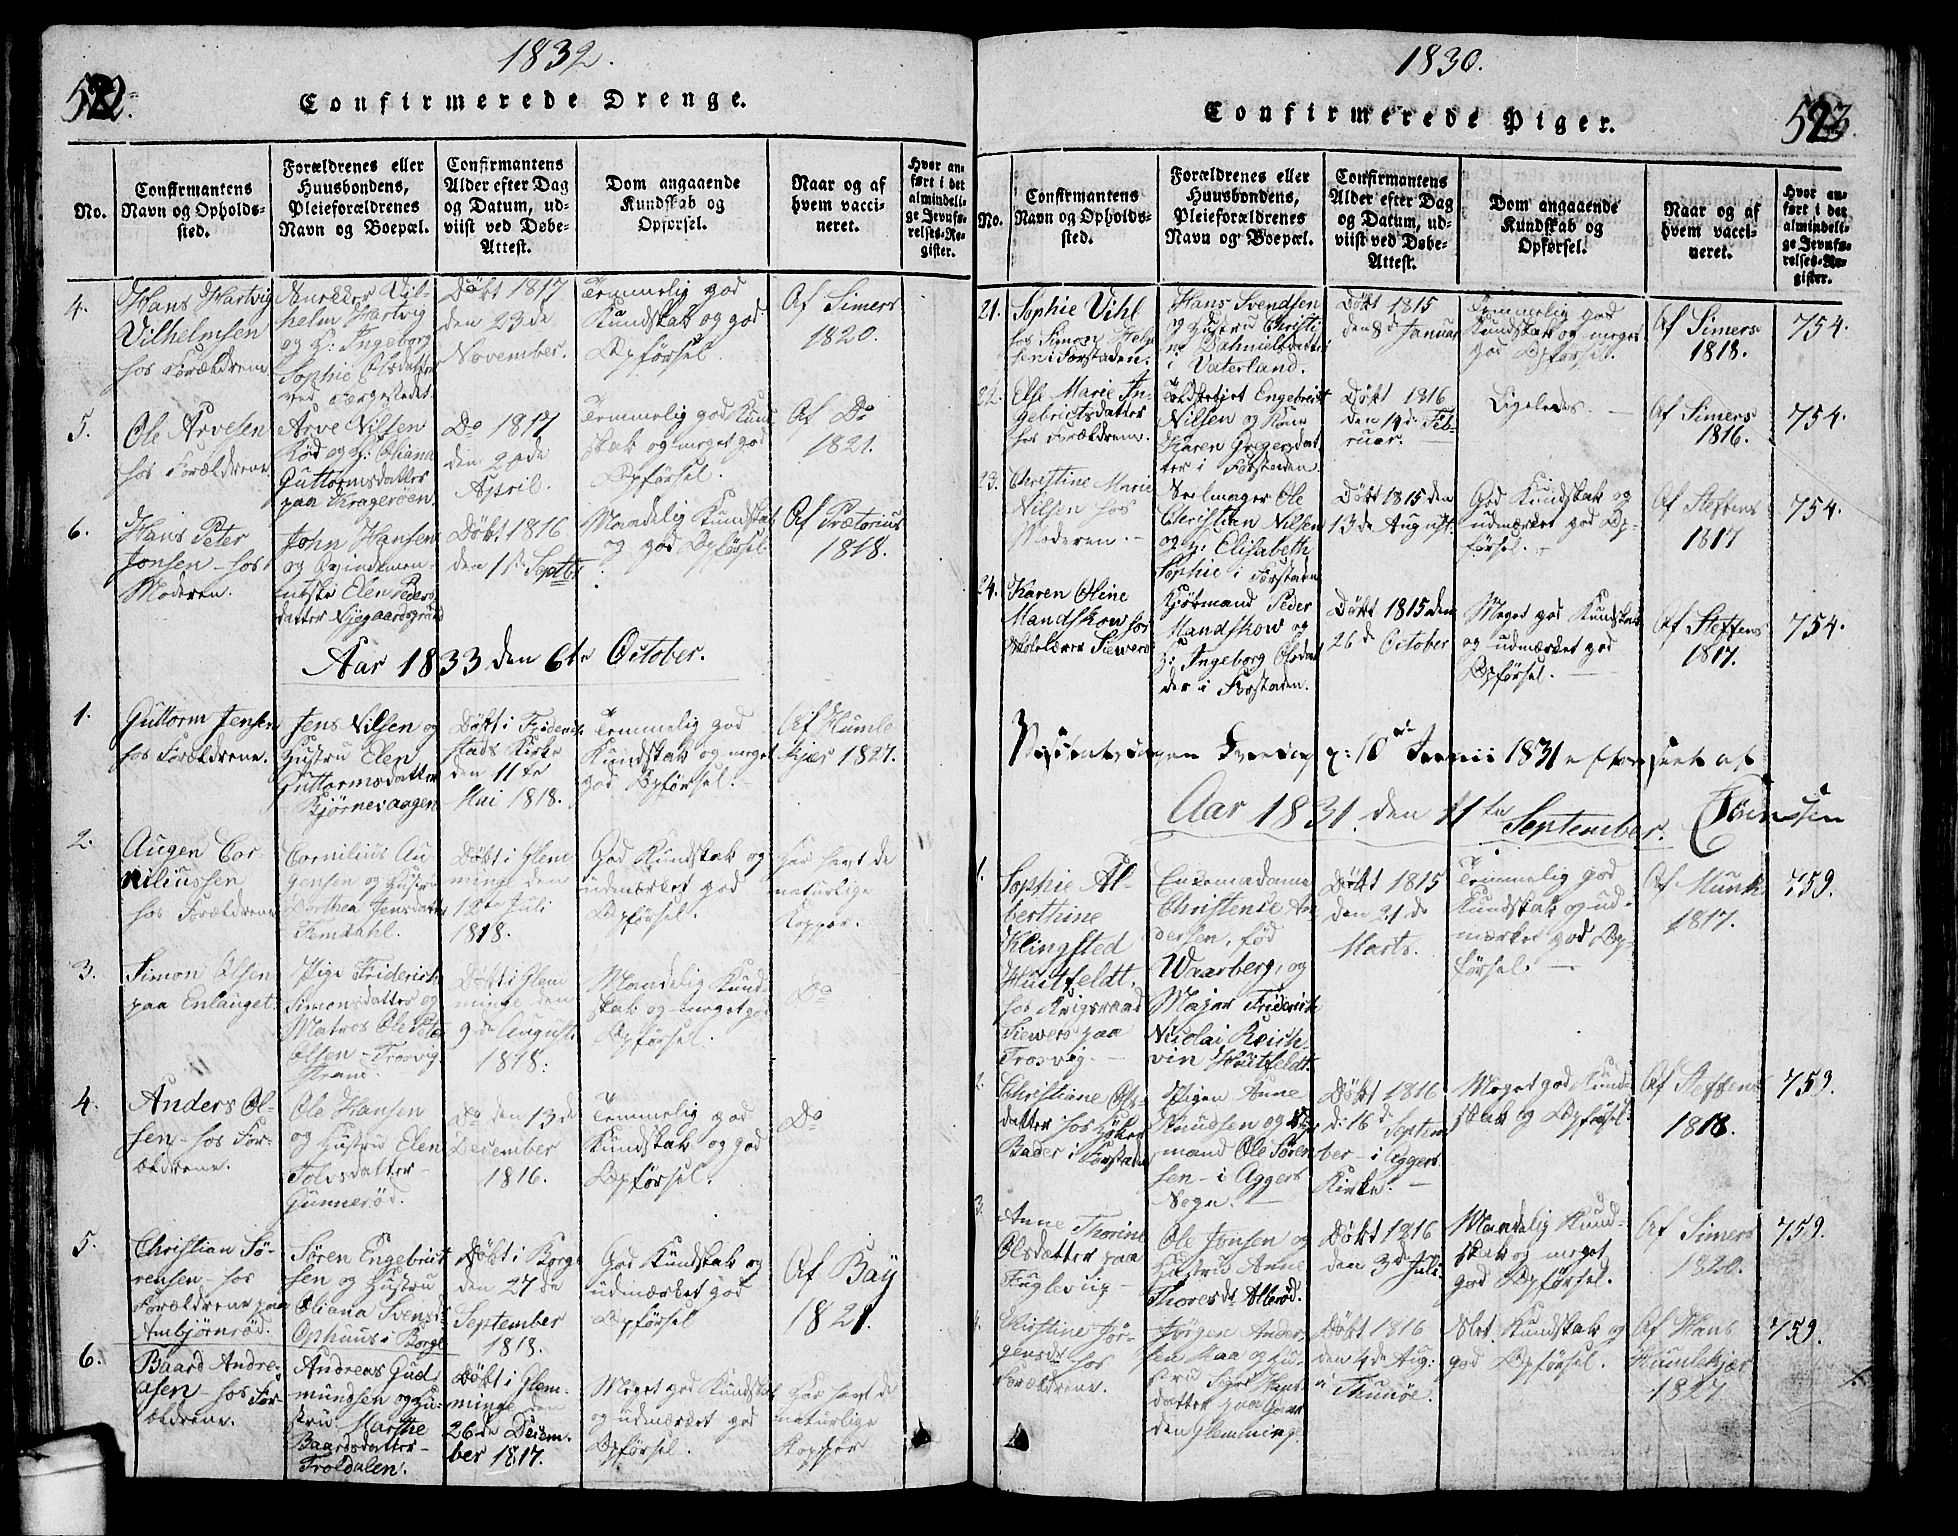 1832.
522.
Confirmerede Drenge.
No.
Confirmantens
Navn og Opholds-
sted.
Forældrenes eller
Huusbondens,
Pleieforældrenes
Navn og Boepæl.
Confirmantens
Alder efter Dag
og Datum, ud-
viist ved Døbe-
Attest.
Dom angaaende
Kundskab og
Opførsel.
Naar og af
hvem vacci-
neret.
Hvor an-
ført i det
almindeli-
ge Jevnfø-
relses-Re-
gister.
4.
Hans Hartvig
Vilhelmsen
hos Forældrene
Vil-
helm Hartvig
og H: Ingeborg
Sophie Olsdatter
ved Færgestedet.
Døbt 1817
den 23de
November.
Temmelig god
Kundskab og god
Opførsel.
Af Simers
1820.
5.
Ole Arvesen
hos Forældrene
Arve Nilsen
og H: Oliana
Guttormsdatter
paa Kragerøen.
Do 1817
den
April.
Temmelig god Kund-
skab og meget god
Opførsel.
Af Do
1821.
6.
Hans Peter
Jonsen - hos
Moderen.
John Hansen
og Qvindemen-
neske Elen Peders-
datter Niegaardsgrund
Døbt 1816
den 1ste Septbr
Maadelig Kundskab
og god Opførsel.
Af Prætorius
1818.
Aar 1833 den 6te October.
1.
Guttorm Jensen
hos Forældrene.
Jens Nilsen og
Hustru Elen
Guttormsdatter
Bjørnevaagen
Døbt i Friderik-
stads Kirke
den 11te
Mai 1818.
Temmelig god
Kundskab og meget
god Opførsel.
Af Humle-
kjær 1827.
2.
Augen Cor-
niliussen
hos Forældrene
Cornilius Au-
gensen og Hustru
Dorthea Jensdatter
Døbt i Glem-
minge den
12te Juli
1818.
God Kundskab og
udmærket god
Opførsel.
Har havt de
naturlige
Kopper.
3.
Simon Olsen
paa Enlauget.
Pige Friderich
Simonsdatter og
Matros Ole Peter
Olsen - Trosvig
Strand.
Døbt i Glem-
minge den
9de August
1818.
Maadelig Kund-
skab og meget god
Opførsel.
Do
4.
Anders Ol-
sen - hos For-
ældrene.
Ole Hansen
og Hustru Elen
Tolvsdatter
Gunnerød.
Do den 13de
December
1816.
Temmelig god
Kundskab og god
Opførsel.
Do
5.
Christian Sø-
rensen - hos
Forældrene paa
Ambjørnrød.
Søren Engebrict-
sen og Hustru
Oliana Svensd.
Ophuus i Borge
Døbt i Borge
den 27de
September
1818.
God Kundskab og
udmærket god
Opførsel
Af Bay
1821.
6.
Baard Andre-
asen - hos For-
ældrene.
Andreas Gud-
mundsen og Hu-
stru Marthe
Baardsdatter
Troldalen.
Døbt i Glem-
minge den
26de Decem-
ber 1817.
Meget god Kundskab
og udmærket god
Opførsel.
Har havt de
naturlige
Kopper
1830.
523.
Confirmerede Piger.
No.
Confirmantens
Navn og Opholds-
sted.
Forældrenes eller
Huusbondens,
Pleieforældrenes
Navn og Boepæl.
Confirmantens
Alder efter Dag
og Datum, ud-
viist ved Døbe-
Attest.
Dom angaaende
Kundskab og
Opførsel.
Naar og af
hvem vacci-
neret.
Hvor an-
ført i det
almindeli-
ge Jevnfø-
relses-Re-
gister.
21.
Sophie Vihl
hos Simon Helge-
sen i Forstaden.
Hans Svendsen
og Hustru Christi-
ne Dahnielsdatter
i Vaterland.
Døbt 1815
den 8de Januar
Temmelig god
Kundskab og meget
god Opførsel.
Af Simers
1818.
754.
22.
Else Marie In-
gebrictsdatter
hos Forældrene.
Engebrict
Nilsen og Kone
Karen Gregersdat-
ter i Forstaden
Døbt 1816
den 14de Feb-
ruar.
Ligeledes. —
Af Simers
1816.
754.
23.
Christine Marie
Nilsen hos
Moderen. —
Seilmager Ole
Christian Nilsen
og H: Elisabeth
Sophie i Forstaden
Døbt 1815 den
13de August.
God Kundskab og
udmærket god Op-
førsel.
Af Steffens
1817
754.
24.
Karen Oline
Mandskow hos
Siewers
Kjøbmand Peder
Mandskow og
H: Ingeborg Olsdat-
der i Forstaden.
Døbt 1815 den
26de October
Meget god Kundskab
og udmærket god
Opførsel. —
Af Steffens
1817.
754.
1831 efterseet af
Aar 1831. den 11te September.
1.
Sophie Al-
berthine
Klingsted
Huitfeldt,
hos Krigsraad
Siewers paa
Trosvig. —
Enkemadame
Christense An-
dersen, fød
Waarberg, og
Major Friderich
Nicolai Reich-
vin Huitfeldt.
Døbt 1815
den 21de
Marts.
Temmelig god
Kundskab og ud-
mærket god Op-
førsel. —
Af Munk
1817.
759.
2.
Christiane Ols-
datter hos Høker
Bader i Forstaden
Pigen Anne
Knudsen og
mand Ole Søren-
sen - i Aggers
Sogn. —
Døbt 1816
d: 16de Septem-
ber - i Aggers
Kirke. —
Meget god Kund-
skab og Opførsel.
Af Steffens
1818.
759.
3.
Anne Thorine
Olsdatter paa
Fuglevig
Ole Jonsen og
Hustru Anne
Thoresdr Allerød.
Døbt 1816
den 3de Juli.
Maadelig Kund-
skab og meget
god Opførsel.
Af Simers
1820.
759.
4.
Kirstine Jør-
gensdr hos
Forældrene.
Jørgen Ander-
sen Kaa og Hu-
stru Siger Hans-
datter paa
den Glemming.
Døbt 1816
den 4de Aug:
i Thunøe.
Slet Kundskab og
god Opførsel.
Af Hans
Humlekjær
1827
759.